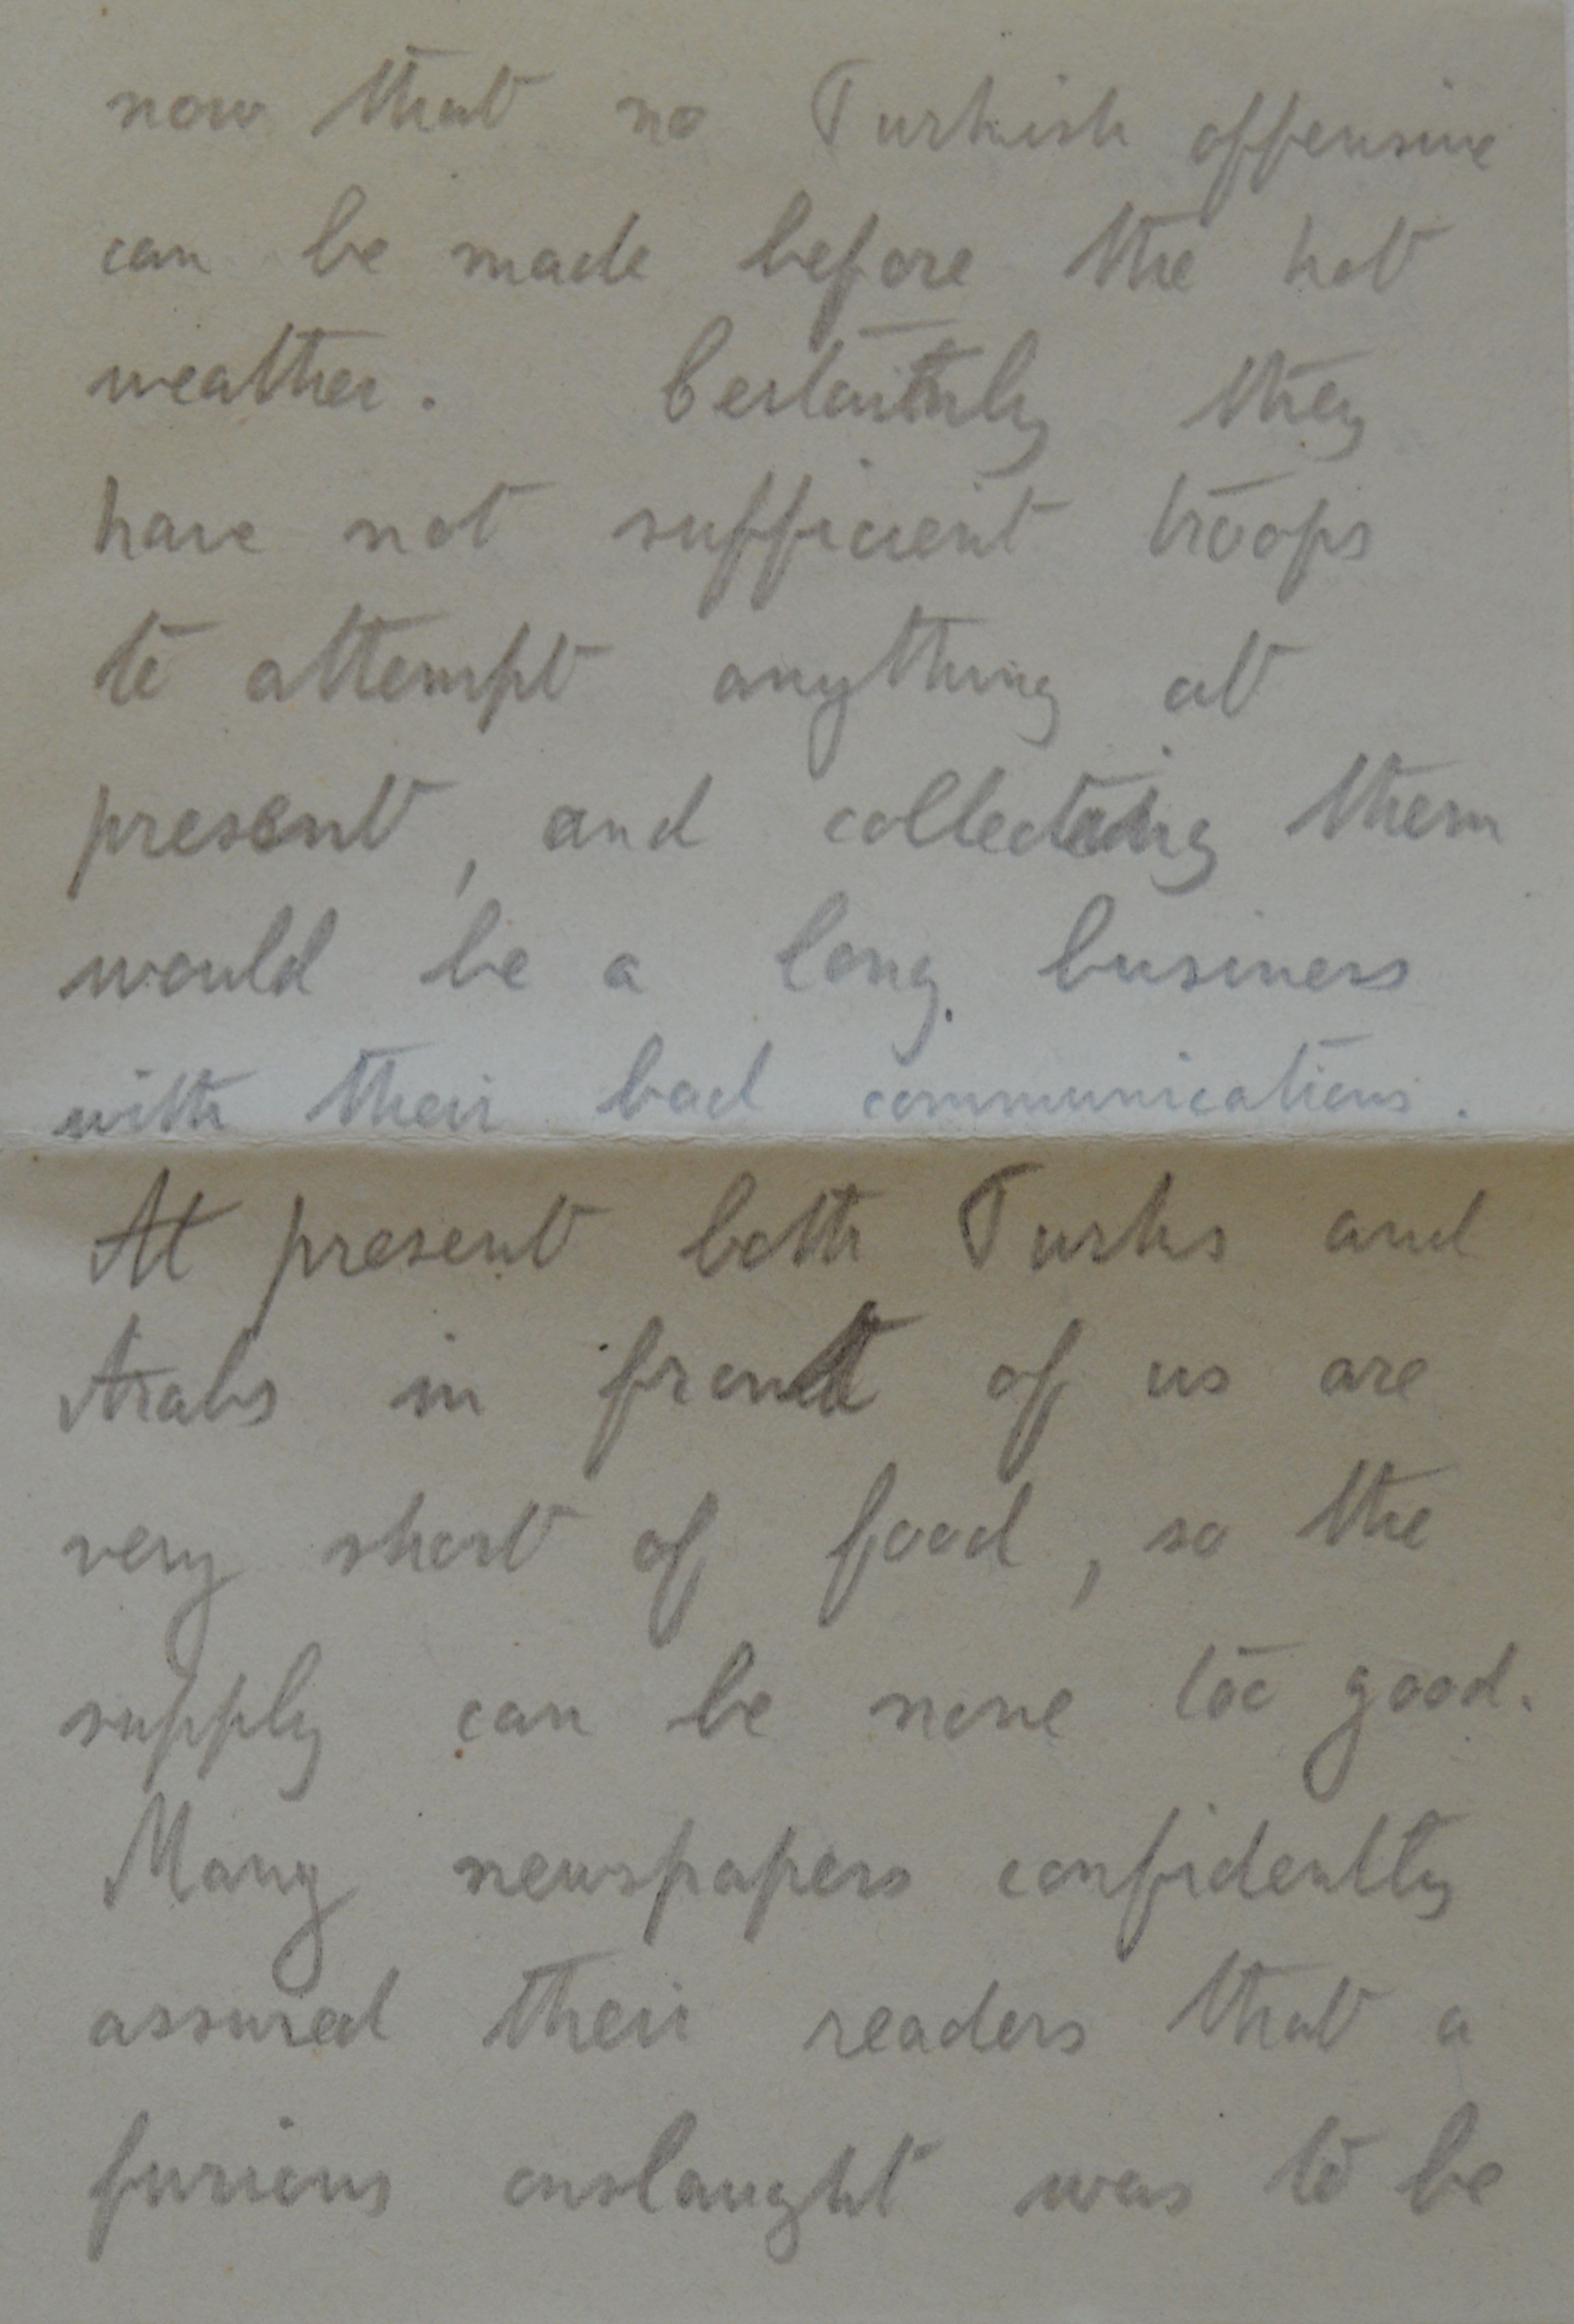 now that no Turkish offensive
can be made before the hot
weather. Certainly they
have not sufficient troops
to attempt anything at
present, and collecting them
would be a long business
with their bad communications.
At present both Turks and
Arabs in front of us are
very short of food, so the
supply can be none too good.
Many newspapers confidently
assured their readers that a
furious onslaught was to be